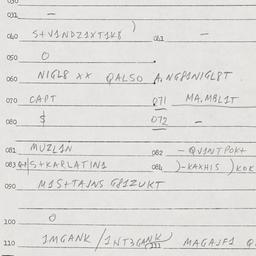 030
031 —
040 S+V1NDZ1XT1K8 ) 041 —
050 O
060 NIGL8 XX QALSO A,NGP1NIGL8T
070 CAPT 071 MA,MBL1T
080 $ 072 —
081 MUZL1N 082 -QV1NTPOK+
083 S+KARLATIN1 084 )-KAXHIS ) KOK
090 M1S+TAJNS GP1ZUKT
100 O
110 1MGANK / 1NT3GANK 111 MAGAJF1